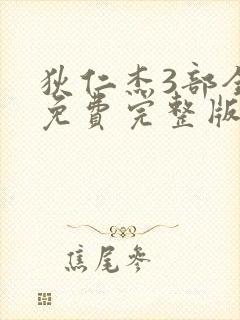 狄仁杰3部全
免费完整版
焦尾参